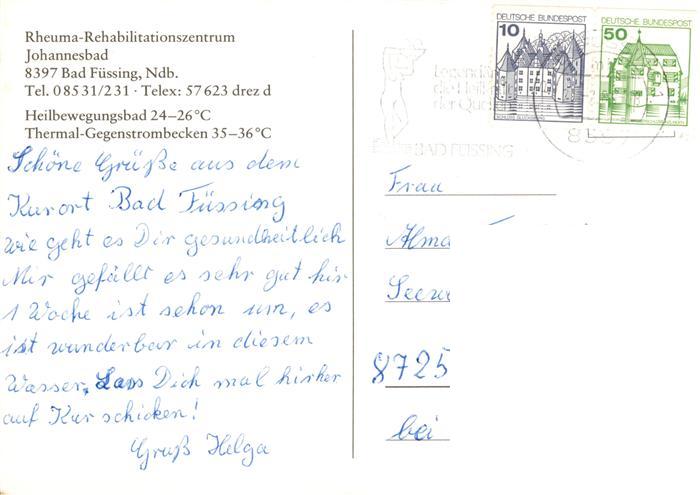 Rheuma-Rehabilitationszentrum
Johannesbad
8397 Bad Füssing, Ndb.
Tel. 08531/231 · Telex: 57623 drez d
Heilbewegungsbad 24–26°C
Thermal-Gegenstrombecken 35–36°C
Schöne Grüße aus dem
Kurort Bad Füssing
wie geht es Dir gesundheitlich
Mir gefällt es sehr gut hir
1 Woche ist schon um, es
ist wunderbar in diesem
Wasser, Lass Dich mal hirher
auf Kur schicken!
Gruß Helga
10 DEUTSCHE BUNDESPOST
50 DEUTSCHE BUNDESPOST
die Heil
der Que
BAD FÜSSING
Frau
Alma
8725
bei